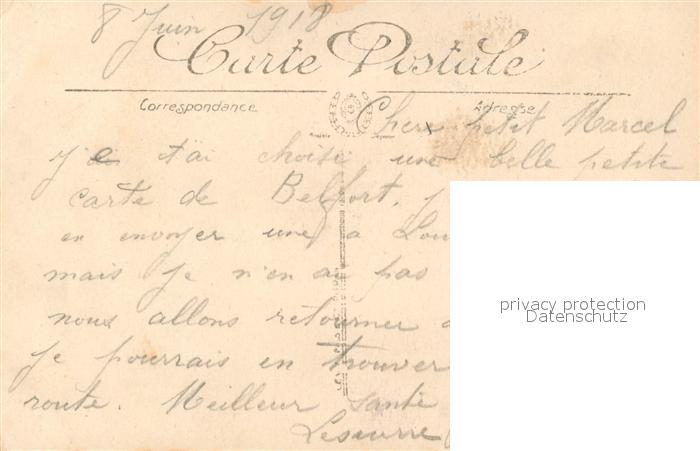 8 Juin 1918
Carte Postale
Correspondance
Adresse
Cher petit Marcel
je t'ai choisi une belle petite
carte de Belfort.
en envoyer une a Lou
mais je n'en ai pas
nous allons retourner
je pourrais en trouver
route. Meilleur santé
Leseurre
privacy protection
Datenschutz